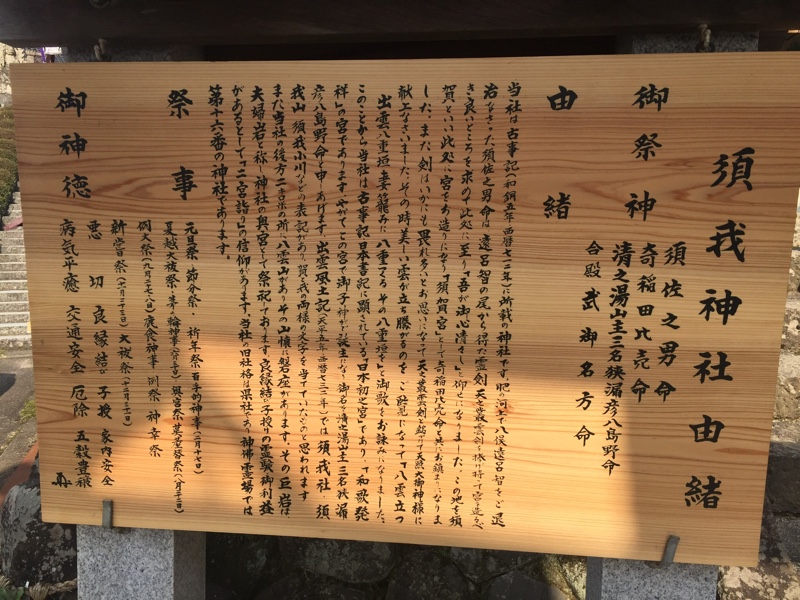 須我神社由緒
御祭神
須佐之男命
奇稲田比売命
清之湯山主三名狭漏彦八島野命
合殿 武御名方命
由緒
当社は古事記(和銅五年西暦七一二年)に所載の神社です。肥の河上で八俣遠呂智をご退
治なさった須佐之男命は、遠呂智の尾から得た霊剣天叢雲剣を捧げ持って宮造るべ
き良いところを求めて此処に至り「吾が御心清々し」と仰せになりました。この地を須
賀といい此処に宮をお造りになり「須賀宮」として奇稲田比売命と共にお鎮まりになりま
した。また、剣はいかにも畏れ多いとお思いになって天叢雲剣と銘けて天照大御神様に
献上なさいました。その時美しい雲が立ち騰がるのをご覧になって「八雲立つ
出雲八重垣 妻籠みに 八重垣つくる その八重垣を」と御歌をお詠みになりました。
このことから当社は古事記、日本書紀に顕れている「日本初之宮」であり、「和歌発
祥」の宮であります。やがてこの宮で御子神がご誕生になり、御名を清之湯山主三名狭漏
彦八島野命と申しあげます。出雲風土記(天平五年西暦七三三年)では須我社 須
我山 須我小川などの表記があり、賀と我の両様の文字を当てていたものと思われます。
また当社の後方二粁の所に八雲山がありその山懐に磐座があります。その巨岩は
夫婦岩と称し神社の奥宮として祭祀してあります。良縁結び、子授けの霊験御利益
があるとして「二宮詣り」の信仰があります。当社の旧社格は県社であり神仏霊場では
第十六番の神社であります。
祭事
元旦祭 節分祭 祈年祭 百手的神事(二月十七日)
夏越大祓祭 茅の輪神事(六月三十日)
例大祭(九月二十八日)鹿食神事 例祭 神幸祭
新嘗祭(十一月二十三日)大祓祭(十二月三十一日)
御神徳
悪切 良縁結び 子授 家内安全
病気平癒 交通安全 厄除 五穀豊穣